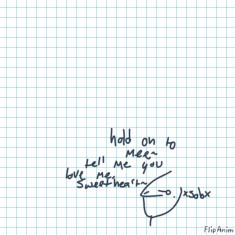 hold on to
mee~
tell me you
love me,
sweetheart~
xsobx
FlipAnim